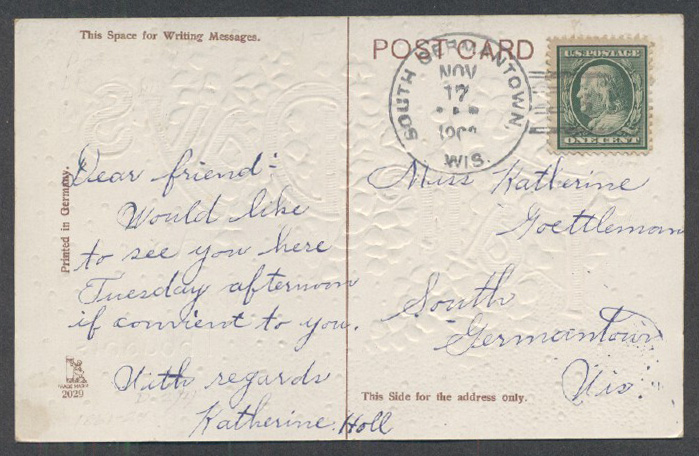 This Space for Writing Messages.
POST CARD
SOUTH GERMANTOWN,
NOV
17
WIS.
U.S. POSTAGE
ONE CENT
Printed in Germany.
Dear friend:-
Would like
to see you here
Tuesday afternoon
if convient to you.
With regards
Katherine Holl
Miss Katherine
Goettleman
South
Germantown
Wis.
TRADE MARK
2029
This Side for the address only.